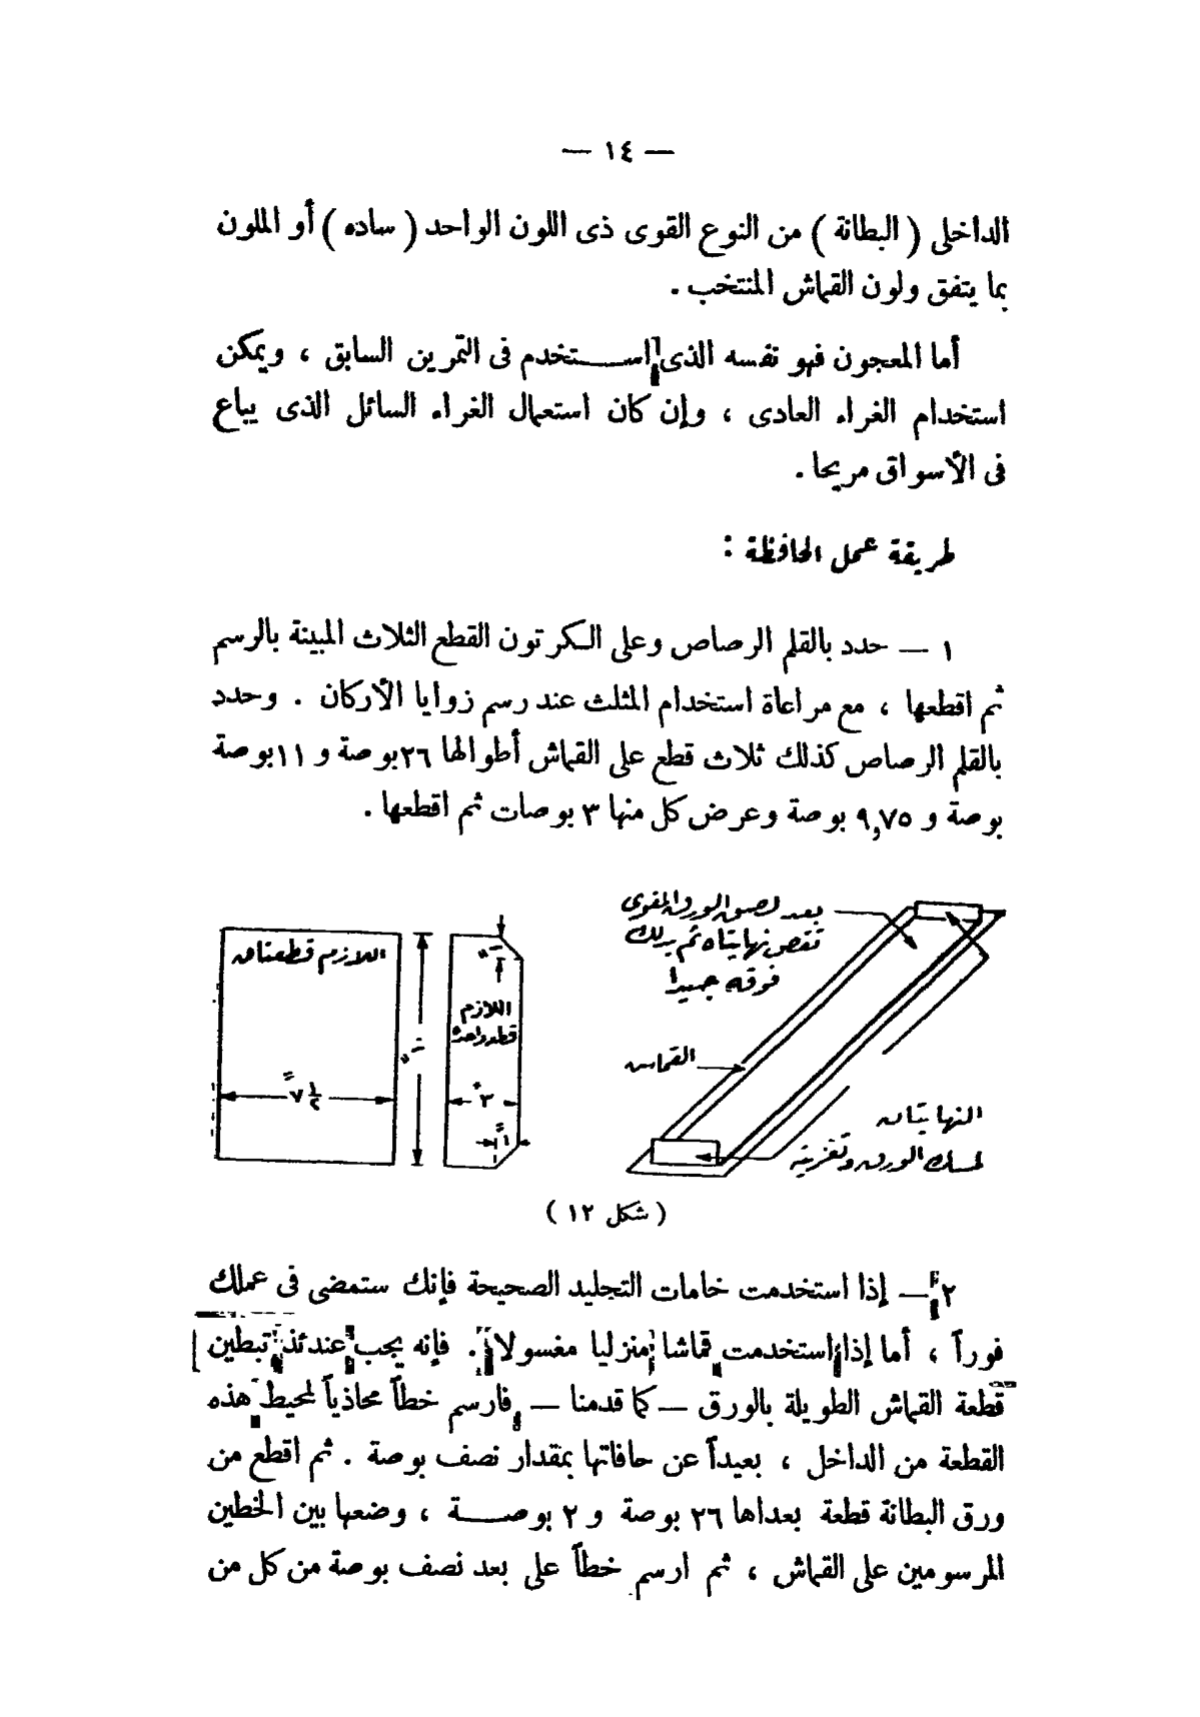 — ١٤ —
الداخلى ( البطانة ) من النوع القوى ذى اللون الواحد ( ساده ) أو الملون
بما يتفق ولون القماش المنتخب .
أما المعجون فهو نفسه الذى استخدم فى التمرين السابق ، ويمكن
استخدام الغراء العادى ، وإن كان استعمال الغراء السائل الذى يباع
فى الأسواق مريحا .
طريقة عمل الحافظة :
١ — حدد بالقلم الرصاص وعلى الكرتون القطع الثلاث المبينة بالرسم
ثم اقطعها ، مع مراعاة استخدام المثلث عند رسم زوايا الأركان . وحدد
بالقلم الرصاص كذلك ثلاث قطع على القماش أطوالها ٢٦بوصة و ١١بوصة
بوصة و ٩,٧٥ بوصة وعرض كل منها ٣ بوصات ثم اقطعها .
بعد لصق الورق المقوى
تقص نهايتاه ثم يدلك
فوقه جيدا
القماش
النهايتان
لمسك الورق وتغريته
اللازم قطعتان
٧ ١/٢"
١٠"
١"
اللازم
قطعه واحدة
٣"
١"
( شكل ١٢ )
٢ — إذا استخدمت خامات التجليد الصحيحة فإنك ستمضى فى عملك
فوراً ، أما إذا استخدمت قماشا منزليا مغسولا . فإنه يجب عندئذ تبطين
قطعة القماش الطويلة بالورق — كما قدمنا — فارسم خطاً محاذياً لمحيط هذه
القطعة من الداخل ، بعيداً عن حافاتها بمقدار نصف بوصة . ثم اقطع من
ورق البطانة قطعة بعداها ٢٦ بوصة و ٢ بوصة ، وضعها بين الخطين
المرسومين على القماش ، ثم ارسم خطاً على بعد نصف بوصة من كل من